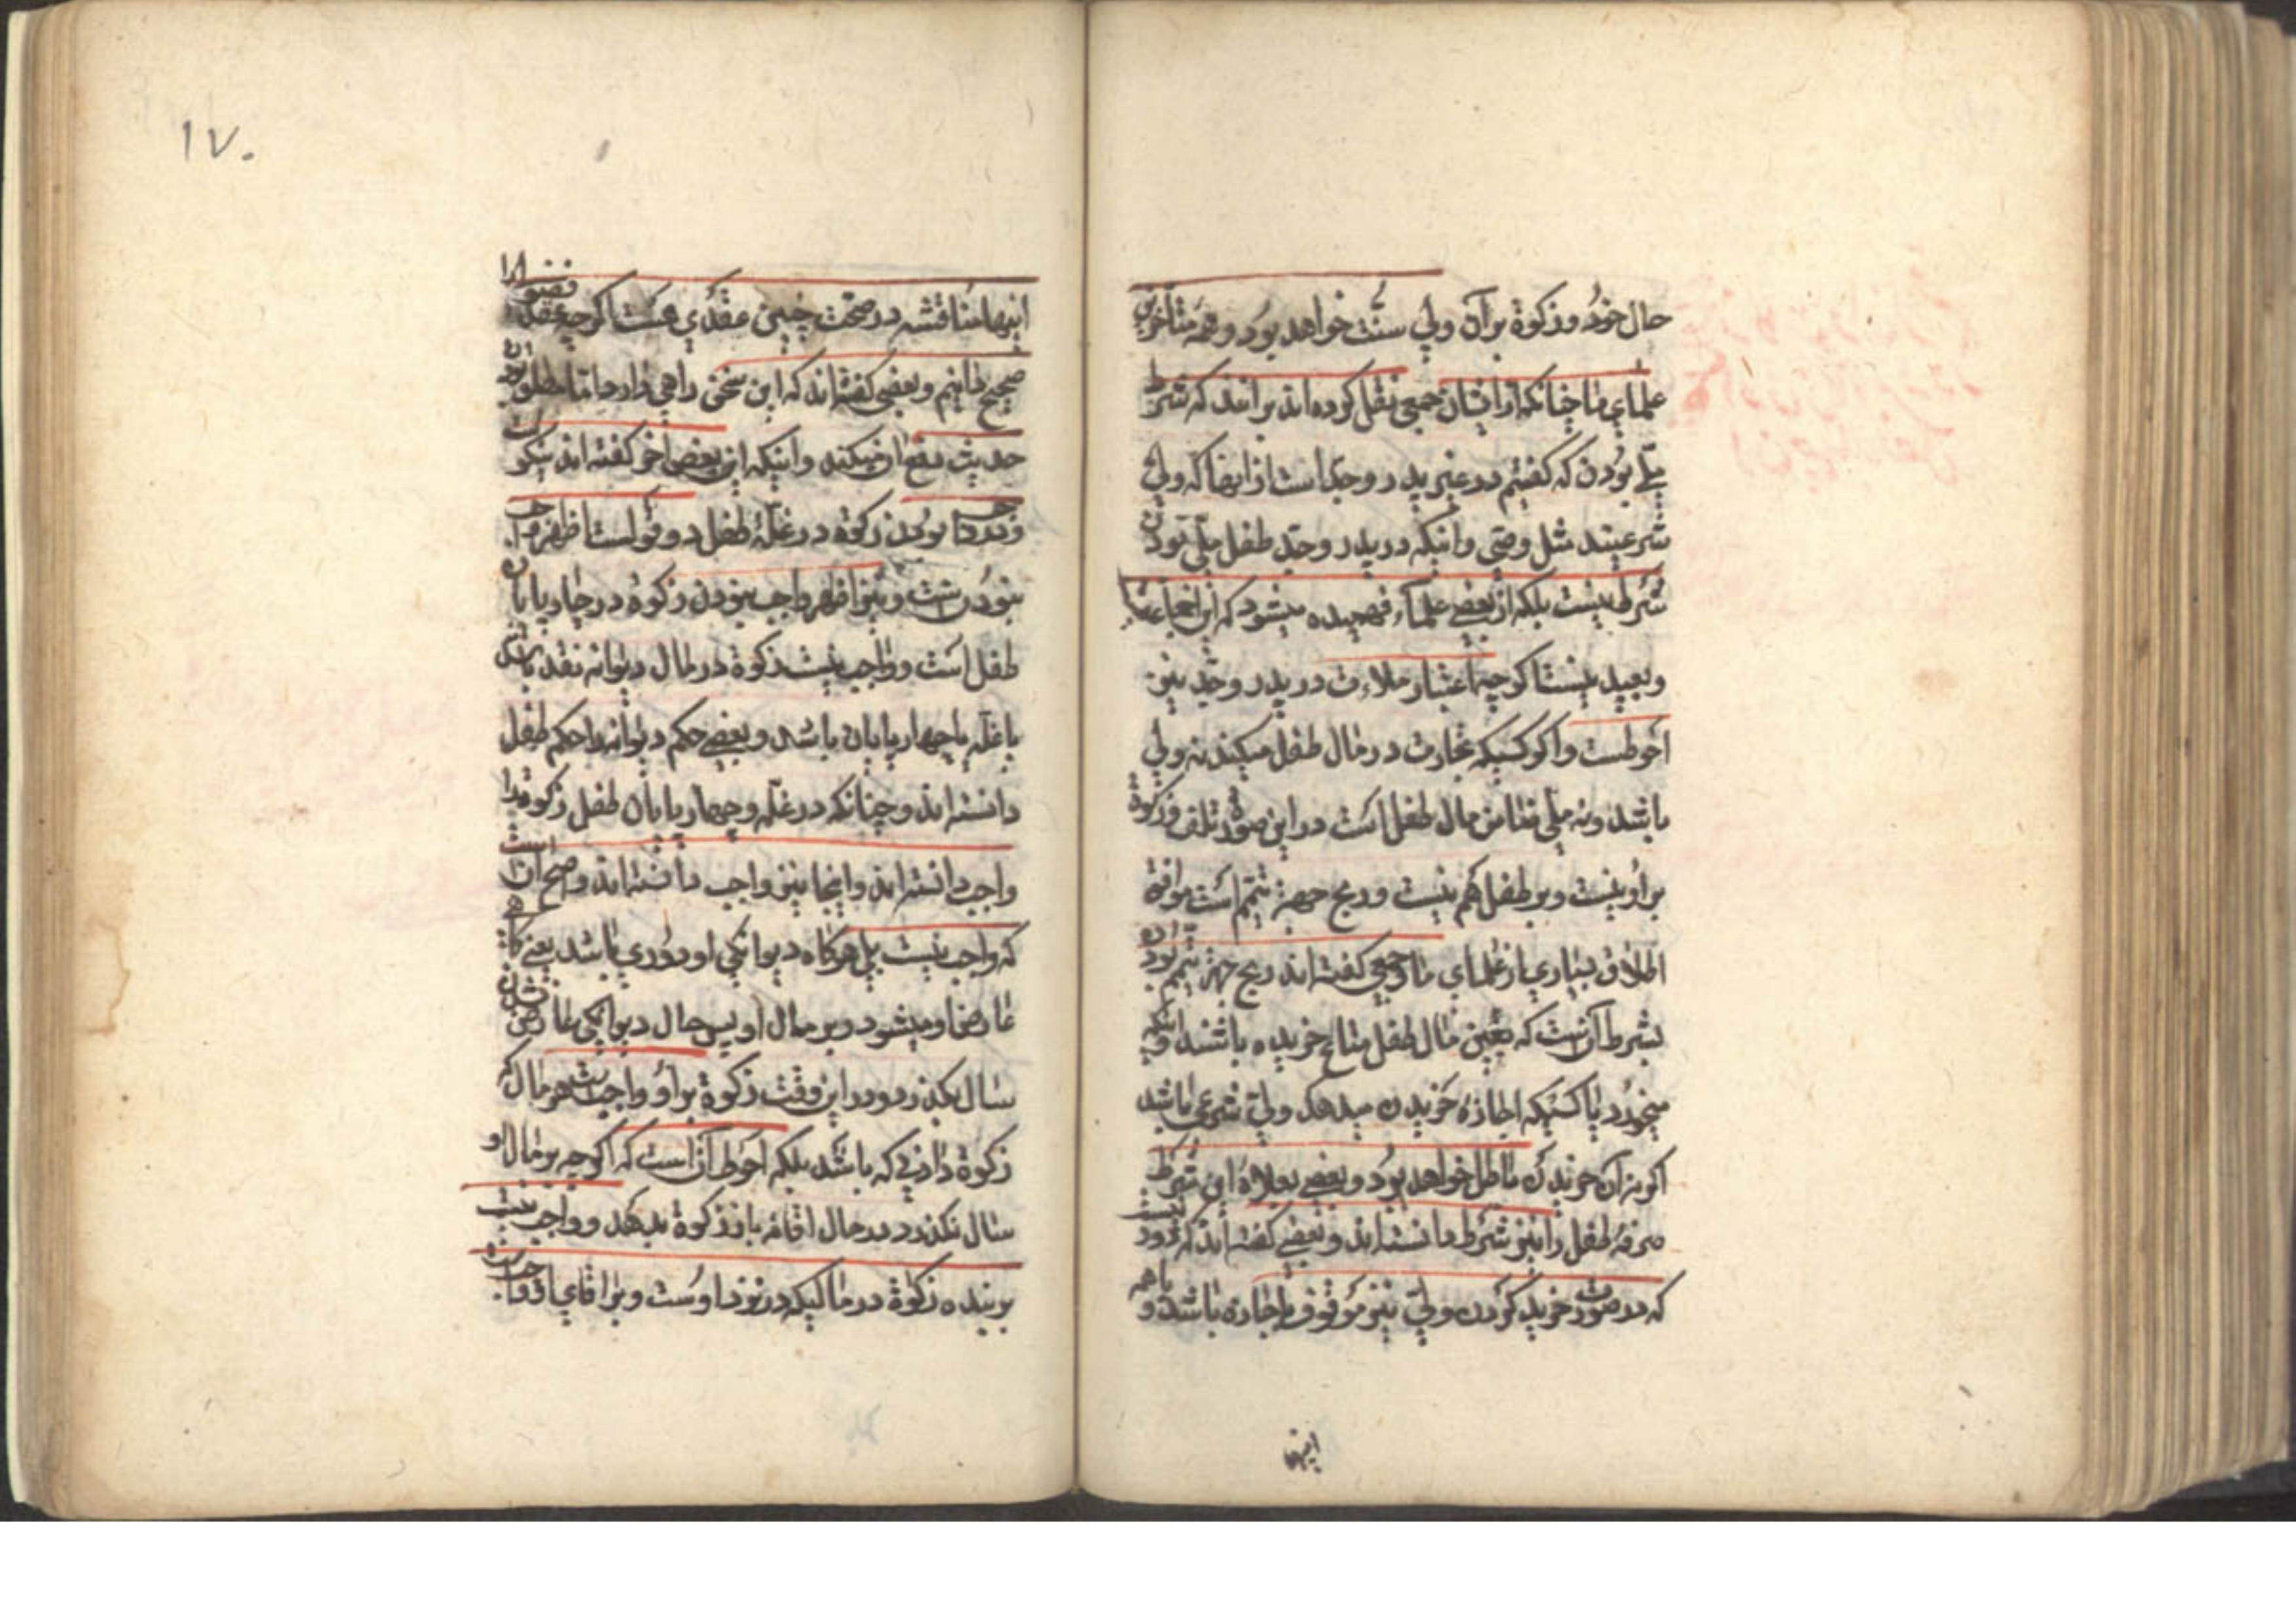 حال خود و زکوة بر آن ولی سنّت خواهد بود و همه متأخرین
علمای ما چنانکه از ایشان جمعی نقل کرده اند برانند که شرط
ملّی بودن که گفتیم در غیر پدر و جدّ است از آنها که ولی
شرعیند مثل وصی و اینکه در پدر و جدّ طفل ملّی بودن
شرط نیست بلکه از بعضی علماء فهمیده میشود که این اجماعیست
و بعید نیست اگرچه اعتبار ملاءت در پدر و جدّ نیز
احوطست و اگر کسیکه تجارت در مال طفل میکند نه ولی
باشد و نه ملّی ضامن مال طفل است در این صورة تلف و زکوة
بر او نیست و بر طفل هم نیست و ربح جهة یتیم است موافق
اطلاق بسیاری از علمای ما و جمعی گفته اند ربح جهة یتیم بودن
بشرط آنست که بعین مال طفل متاع خریده باشند و اینکه
میخرد یا کسیکه اجازه خریدن میدهد ولیّ شرعی باشد
اگر نه آن خریدن باطل خواهد بود و بعضی بعلاوه این شرط
صرفه طفل را نیز شرط دانسته اند و بعضی گفته اند که
که در صورت خرید کردن ولیّ نیز موقوف باجازه باشد و با همه
اینها
۱۷۰
اینها مناقشه در صحّت چنین عقدی هست اگرچه عقد فضولی را
صحیح دانیم و بعضی گفته اند که این سخن راهی دارد اما اطلاق
حدیث دفع آن میکند و اینکه این بعض آخر گفته اند نیکو است
و در واجب بودن زکوة در غلّه طفل دو قولست اظهر واجب
نبودنست و نیز اظهر واجب نبودن زکوة در چارپایان
طفل است و واجب نیست زکوة در مال دیوانه نقد باشد
یا غلّه یا چهارپایان باشد و بعضی حکم دیوانه را حکم طفل
دانسته اند و چنانکه در غلّه و چهارپایان طفل زکوة را
واجب دانسته اند و اینجا نیز واجب دانسته اند و اصح آنست
که واجب نیست بلی هرگاه دیوانگی او دوری باشد یعنی گاهی
عارض او میشود و بر مال او پس حال دیوانگی عارض شدن
سال بگذرد در این وقت زکوة بر او واجبست هر مال که
زکوة دادنی که باشد بلکه احوط آن است که اگرچه بر مال او
سال نگذرد در حال افاقه باز زکوة بدهد و واجب نیست
بر بنده زکوة در مالیکه در نزد اوست و بر آقای او واجب